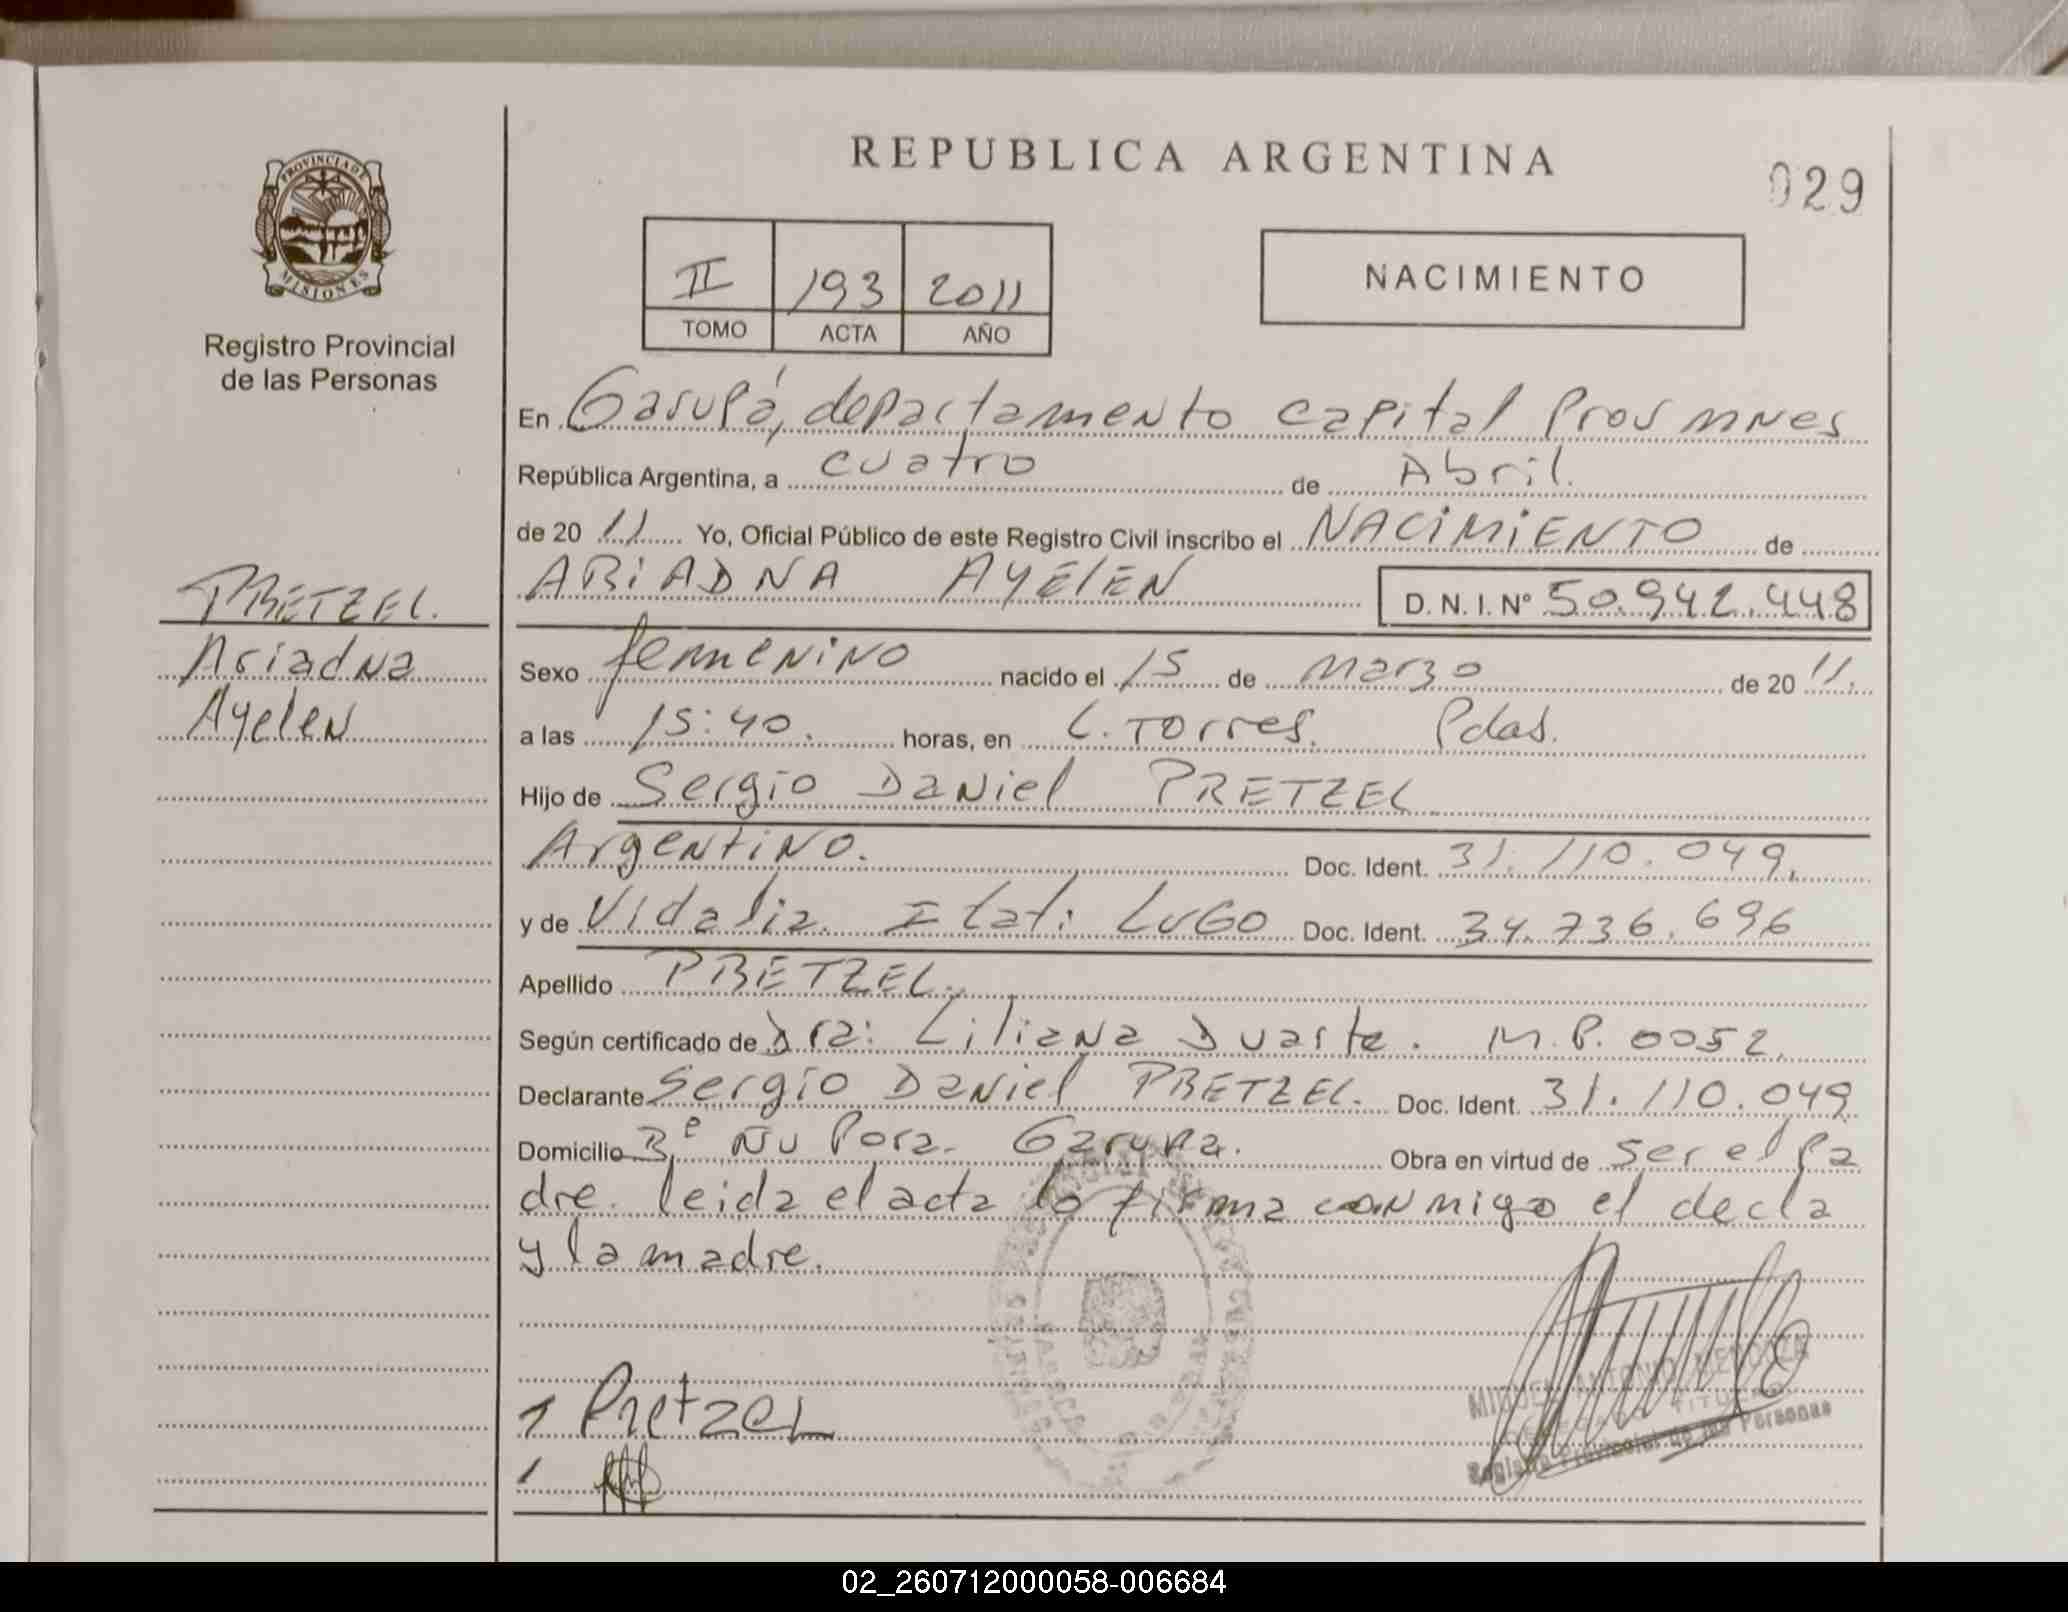 REPUBLICA ARGENTINA
029
PROVINCIA DE
MISIONES
Registro Provincial
de las Personas
II 193 2011
TOMO ACTA AÑO
NACIMIENTO
En Garupá, departamento capital Prov mnes
República Argentina, a cuatro de Abril.
de 20 11 Yo, Oficial Público de este Registro Civil inscribo el NACIMIENTO de
ARIADNA AYELEN D. N. I. Nº 50.942.448
PRETZEL.
Ariadna
Ayelen
Sexo femenino nacido el 15 de marzo de 20 11.
a las 15:40. horas, en L. Torres. Pdas.
Hijo de Sergio Daniel PRETZEL
Argentino. Doc. Ident. 31.110.049.
y de Vidalia Itatí LUGO Doc. Ident. 34.736.696
Apellido PRETZEL.
Según certificado de Dra: Liliana Duarte. M.P. 0052.
Declarante Sergio Daniel PRETZEL. Doc. Ident. 31.110.049
Domicilio Bº Ñu Pora. Garupa. Obra en virtud de ser el pa
dre. leida el acta lo firma conmigo el decla
y la madre.
Pretzel
MIGUEL ANTONIO MENDOZA
TITULAR
Registro Provincial de las Personas
02_260712000058-006684